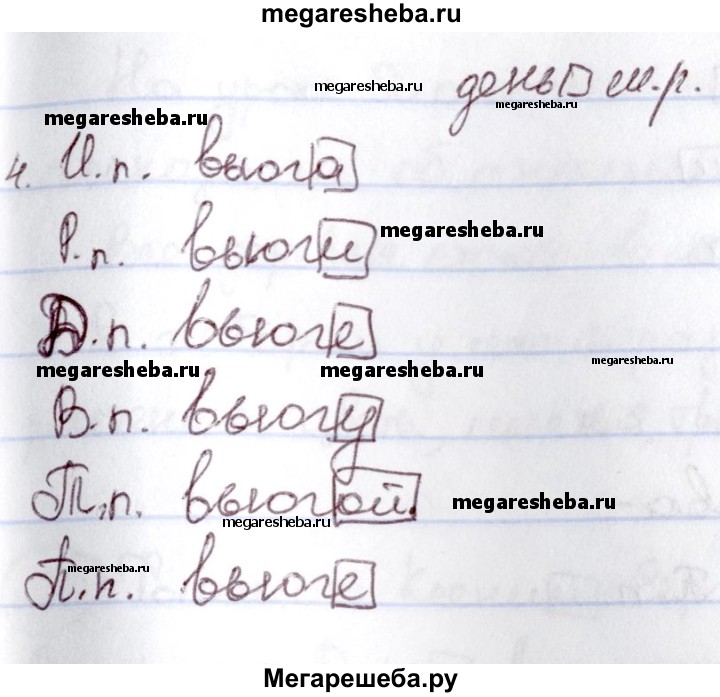 megaresheba.ru
megaresheba.ru день м.р.
megaresheba.ru megaresheba.ru
4. И.п. вьюга
Р.п. вьюги megaresheba.ru
megaresheba.ru
Д.п. вьюге
megaresheba.ru megaresheba.ru megaresheba.ru
В.п. вьюгу
Т.п. вьюгой. megaresheba.ru
megaresheba.ru
megaresheba.ru
П.п. вьюге
Мегарешеба.ру